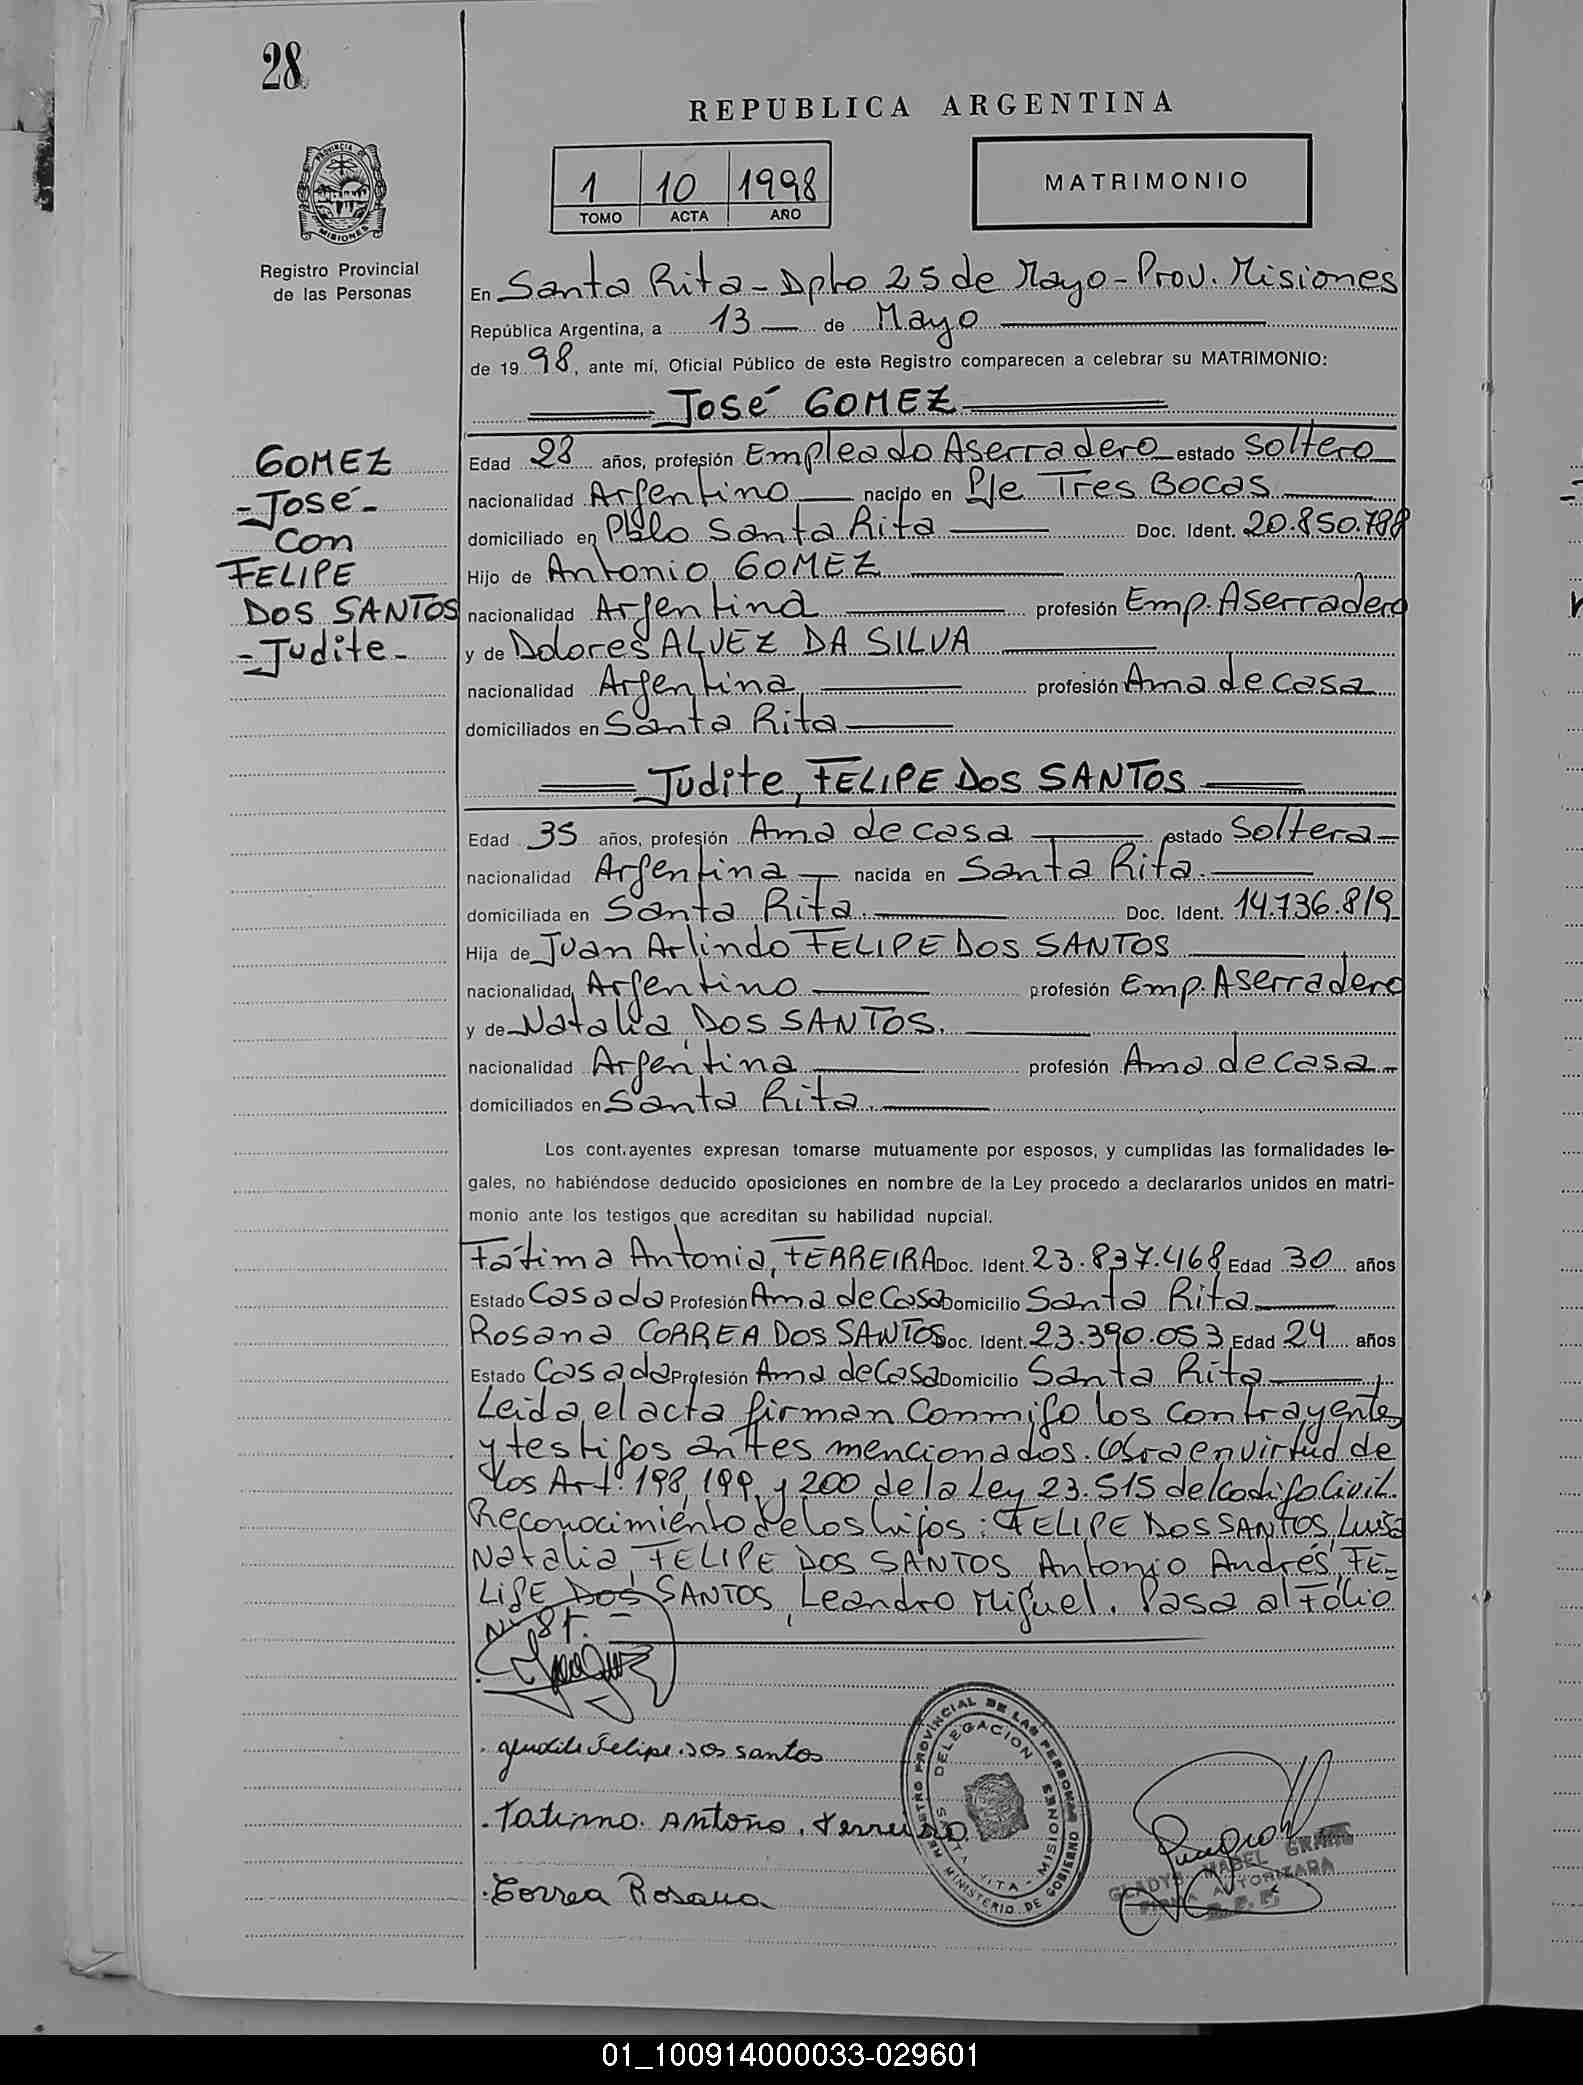 28
REPUBLICA ARGENTINA
1 10 1998
TOMO ACTA AÑO
MATRIMONIO
PROVINCIA DE MISIONES
Registro Provincial
de las Personas
En Santa Rita - Dpto 25 de Mayo - Prov. Misiones
República Argentina, a 13 de Mayo
de 19 98, ante mí, Oficial Público de este Registro comparecen a celebrar su MATRIMONIO:
José GOMEZ
GOMEZ
- José -
Con
FELIPE
DOS SANTOS
- Judite -
Edad 28 años, profesión Empleado Aserradero estado Soltero
nacionalidad Argentino nacido en Pje Tres Bocas
domiciliado en Pblo Santa Rita Doc. Ident. 20.850.788
Hijo de Antonio GOMEZ
nacionalidad Argentina profesión Emp. Aserradero
y de Dolores ALVEZ DA SILVA
nacionalidad Argentina profesión Ama de casa
domiciliados en Santa Rita
Judite, FELIPE DOS SANTOS
Edad 35 años, profesión Ama de casa estado Soltera
nacionalidad Argentina nacida en Santa Rita.
domiciliada en Santa Rita. Doc. Ident. 14.736.819
Hija de Juan Arlindo FELIPE DOS SANTOS
nacionalidad Argentino profesión Emp. Aserradero
y de Natalia, DOS SANTOS.
nacionalidad Argentina profesión Ama de casa
domiciliados en Santa Rita.
Los contrayentes expresan tomarse mutuamente por esposos, y cumplidas las formalidades le-
gales, no habiéndose deducido oposiciones en nombre de la Ley procedo a declararlos unidos en matri-
monio ante los testigos que acreditan su habilidad nupcial.
Fátima Antonia, FERREIRA Doc. Ident. 23.837.468 Edad 30 años
Estado Casada Profesión Ama de Casa Domicilio Santa Rita
Rosana CORREA DOS SANTOS Doc. Ident. 23.390.053 Edad 24 años
Estado Casada Profesión Ama de Casa Domicilio Santa Rita
Leida el acta firman Conmigo los contrayentes
y testigos antes mencionados. Obra en virtud de
los Art. 198, 199, y 200 de la Ley 23.515 del Codigo Civil.
Reconocimiento de los hijos: FELIPE DOS SANTOS, Luisa
Natalia, FELIPE DOS SANTOS Antonio Andrés, FE-
LIPE DOS SANTOS, Leandro Miguel. Pasa al Folio
Judite Felipe dos santos
Fatima Antonia Ferreira
Correa Rosana
REGISTRO PROVINCIAL DE LAS PERSONAS
MINISTERIO DE GOBIERNO
DELEGACION
STA RITA - MISIONES
GLADYS MABEL
FIRMA AUTORIZADA
01_100914000033-029601